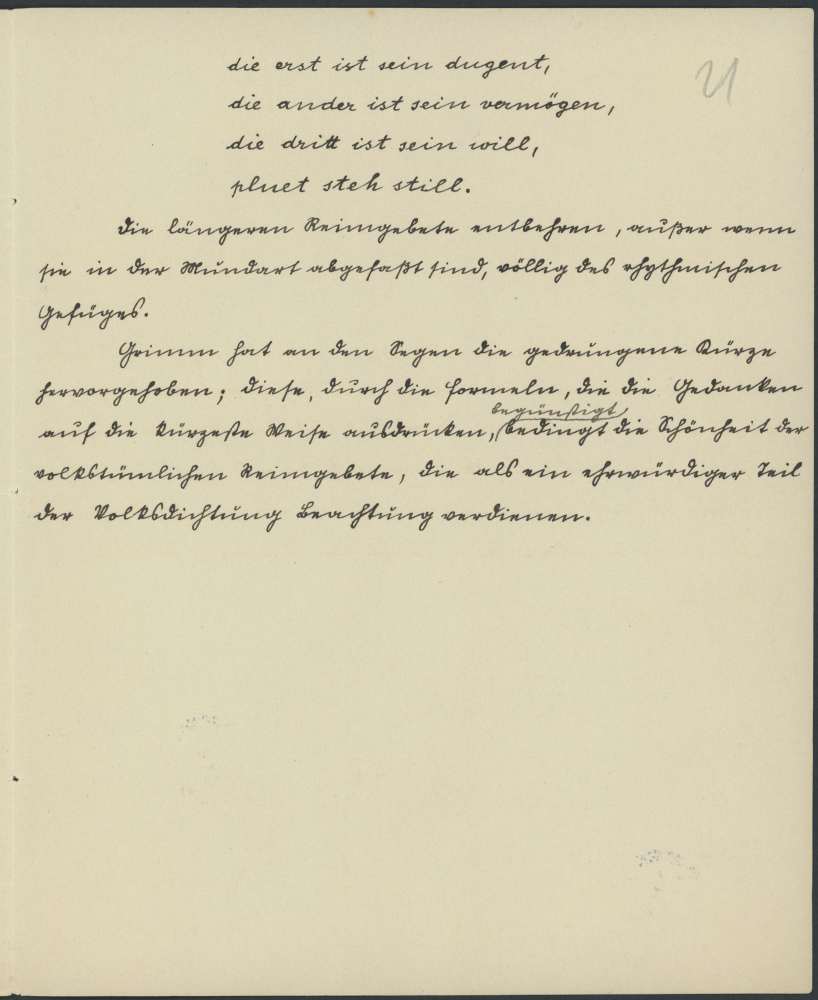 21
die erst ist sein dugent,
die ander ist sein vermögen,
die dritt ist sein will,
pluet steh still.
Die längeren Reimgebete entbehren, außer wenn
sie in der Mundart abgefaßt sind, völlig des rhythmischen
Gefüges.
Grimm hat an den Segen die gedrungene Kürze
hervorgehoben; diese, durch die Formeln, die die Gedanken
begünstigt
auf die kürzeste Weise ausdrücken, bedingt die Schönheit der
volkstümlichen Reimgebete, die als ein ehrwürdiger Teil
der Volksdichtung Beachtung verdienen.